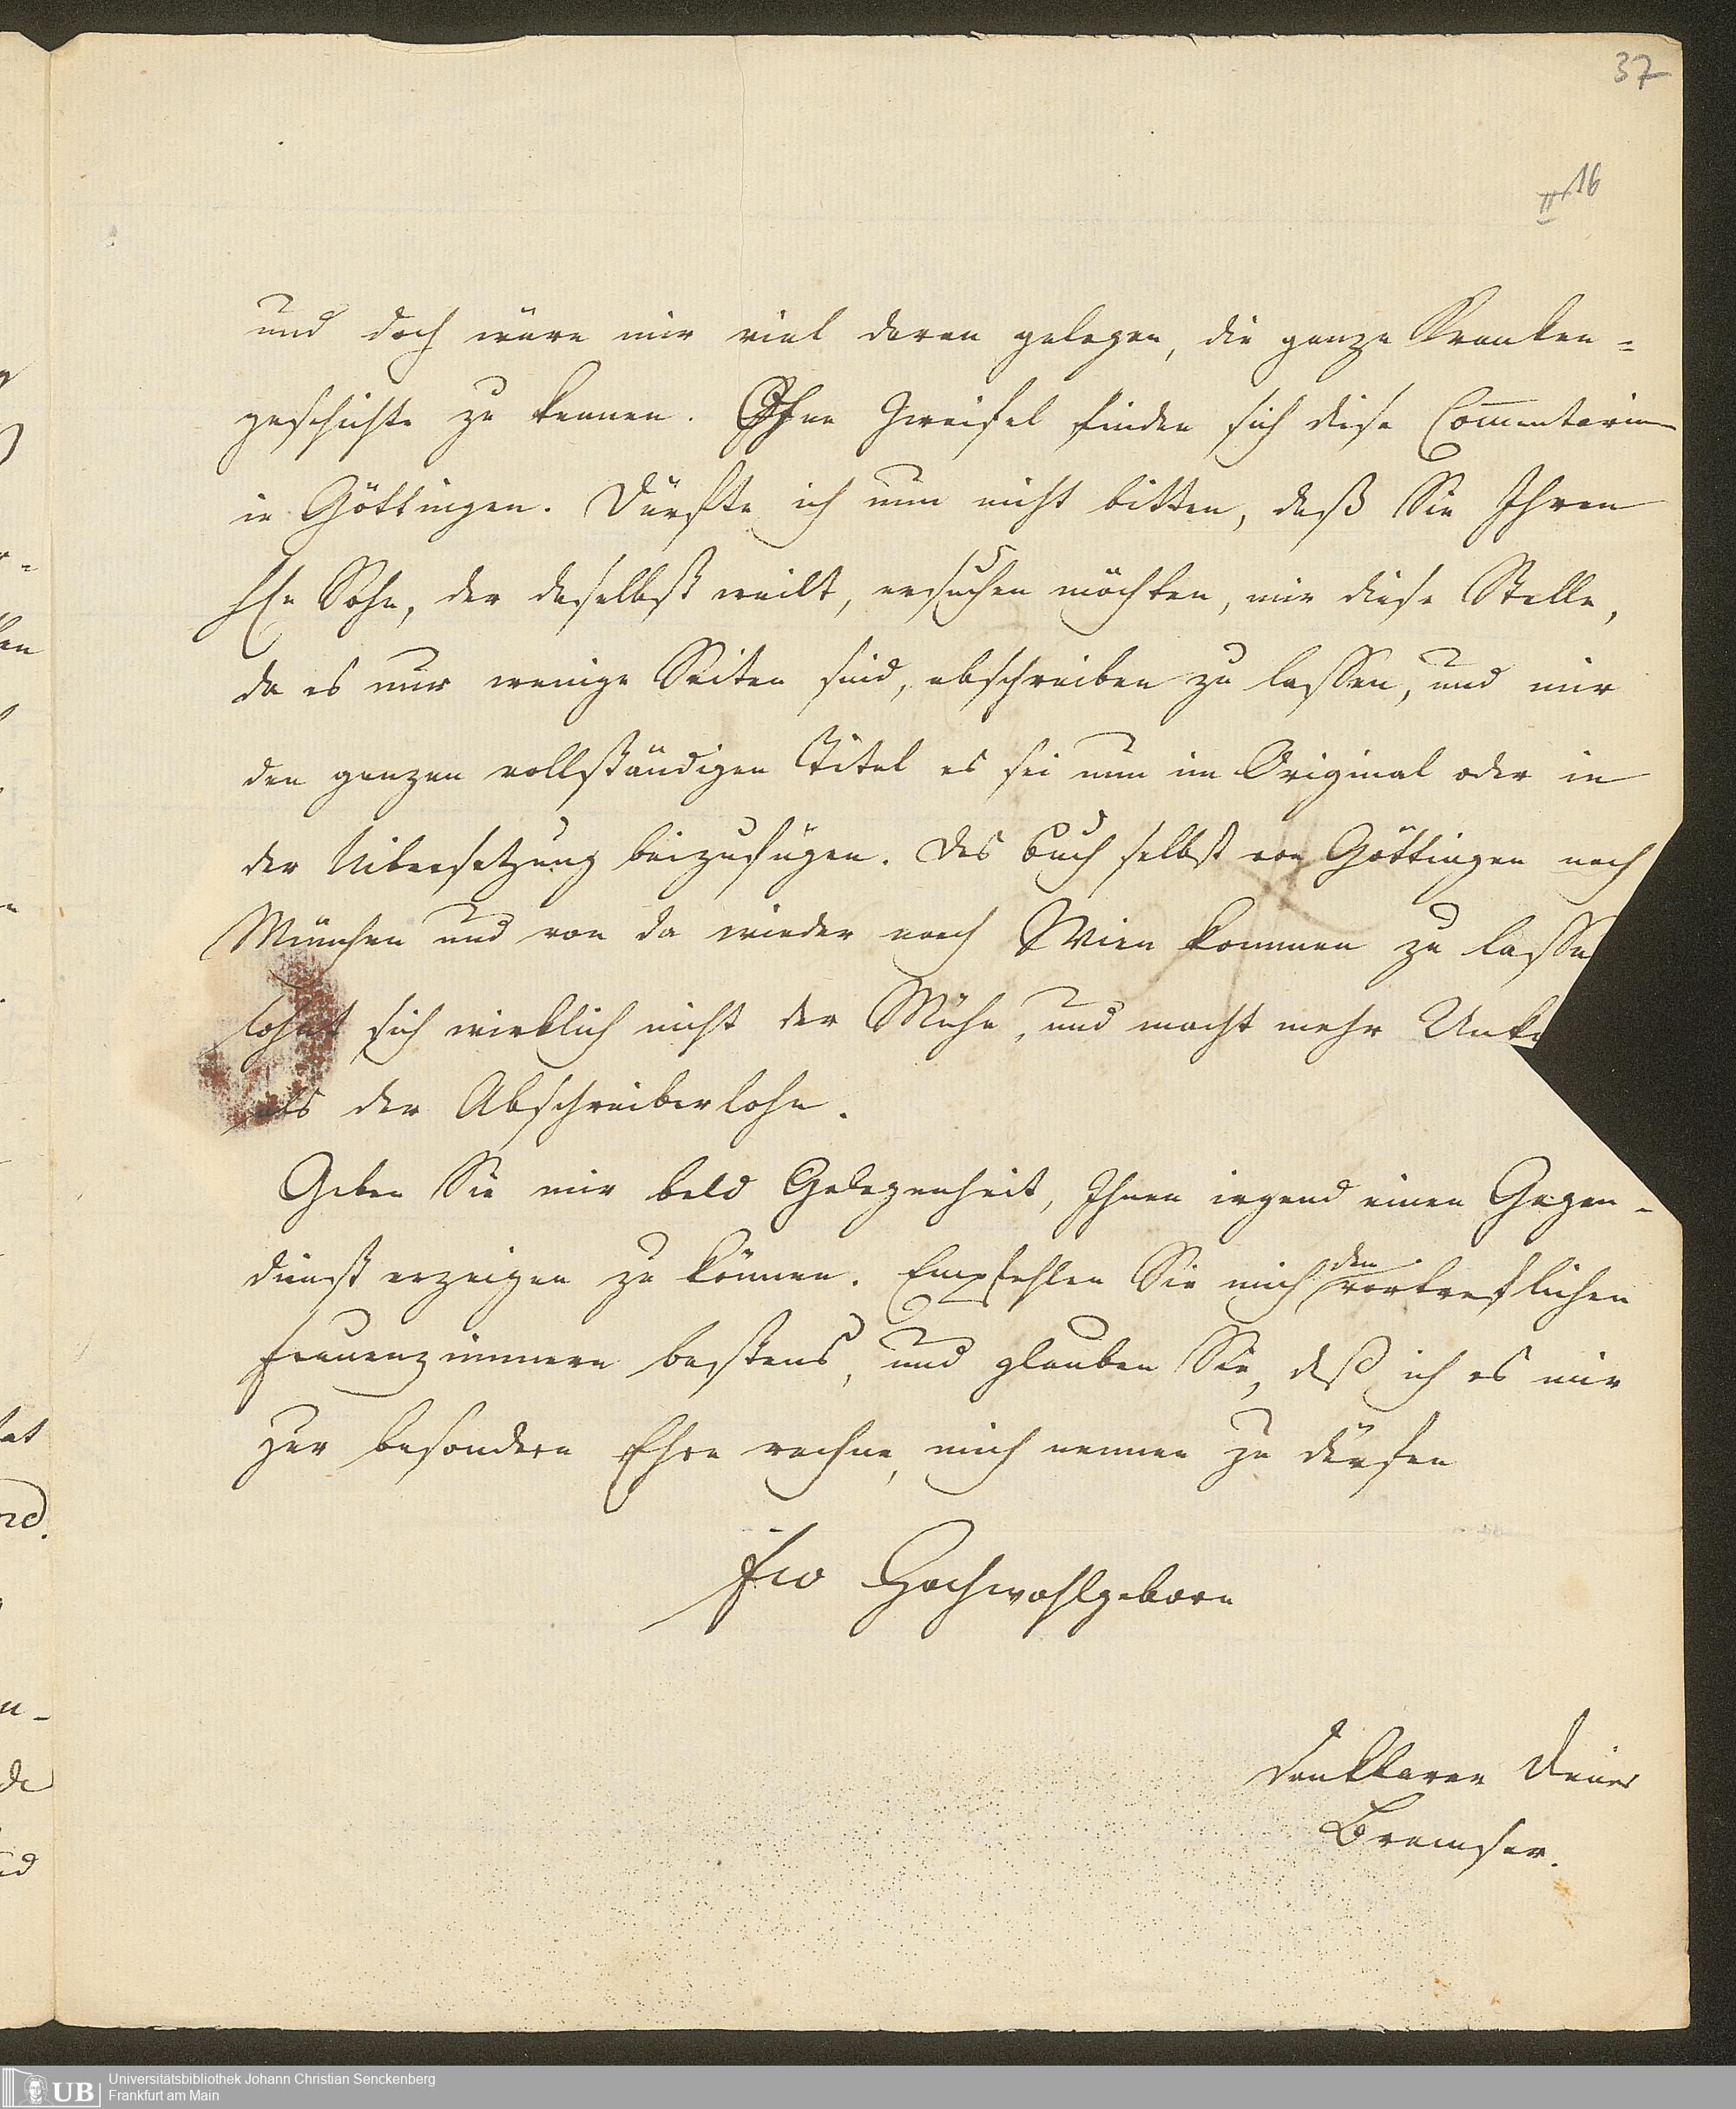 37
II 16
und doch wäre mir viel daran gelegen, die ganze Kranken-
geschichte zu kennen. Ohne Zweifel finden sich diese Com̅entarien
in Göttingen. Dürfte ich nun nicht bitten, daß Sie Ihren
HEn Sohn, der daselbst weilt, ersuchen möchten, mir diese Stelle,
da es nur wenige Seiten sind, abschreiben zu lassen, und mir
den ganzen vollständigen Titel es sei nun im Original oder in
der Uibersetzung beizufügen. Das Buch selbst von Göttingen nach
München und von da wieder nach Wien kommen zu lasse
lohnt sich wirklich nicht der Mühe, und macht mehr Unko
als der Abschreiberlohn.
Geben Sie mir bald Gelegenheit, Ihnen irgend einen Gegen-
dienst erzeigen zu können. Empfehlen Sie mich den vortreflichen
Frauenzimmern bestens, und glauben Sie, daß ich es mir
zur besondern Ehre rechne, mich nennen zu dürfen
Ew Hochwohlgeborn
dankbaren Diener
Bremser.
UB
Universitätsbibliothek Johann Christian Senckenberg
Frankfurt am Main